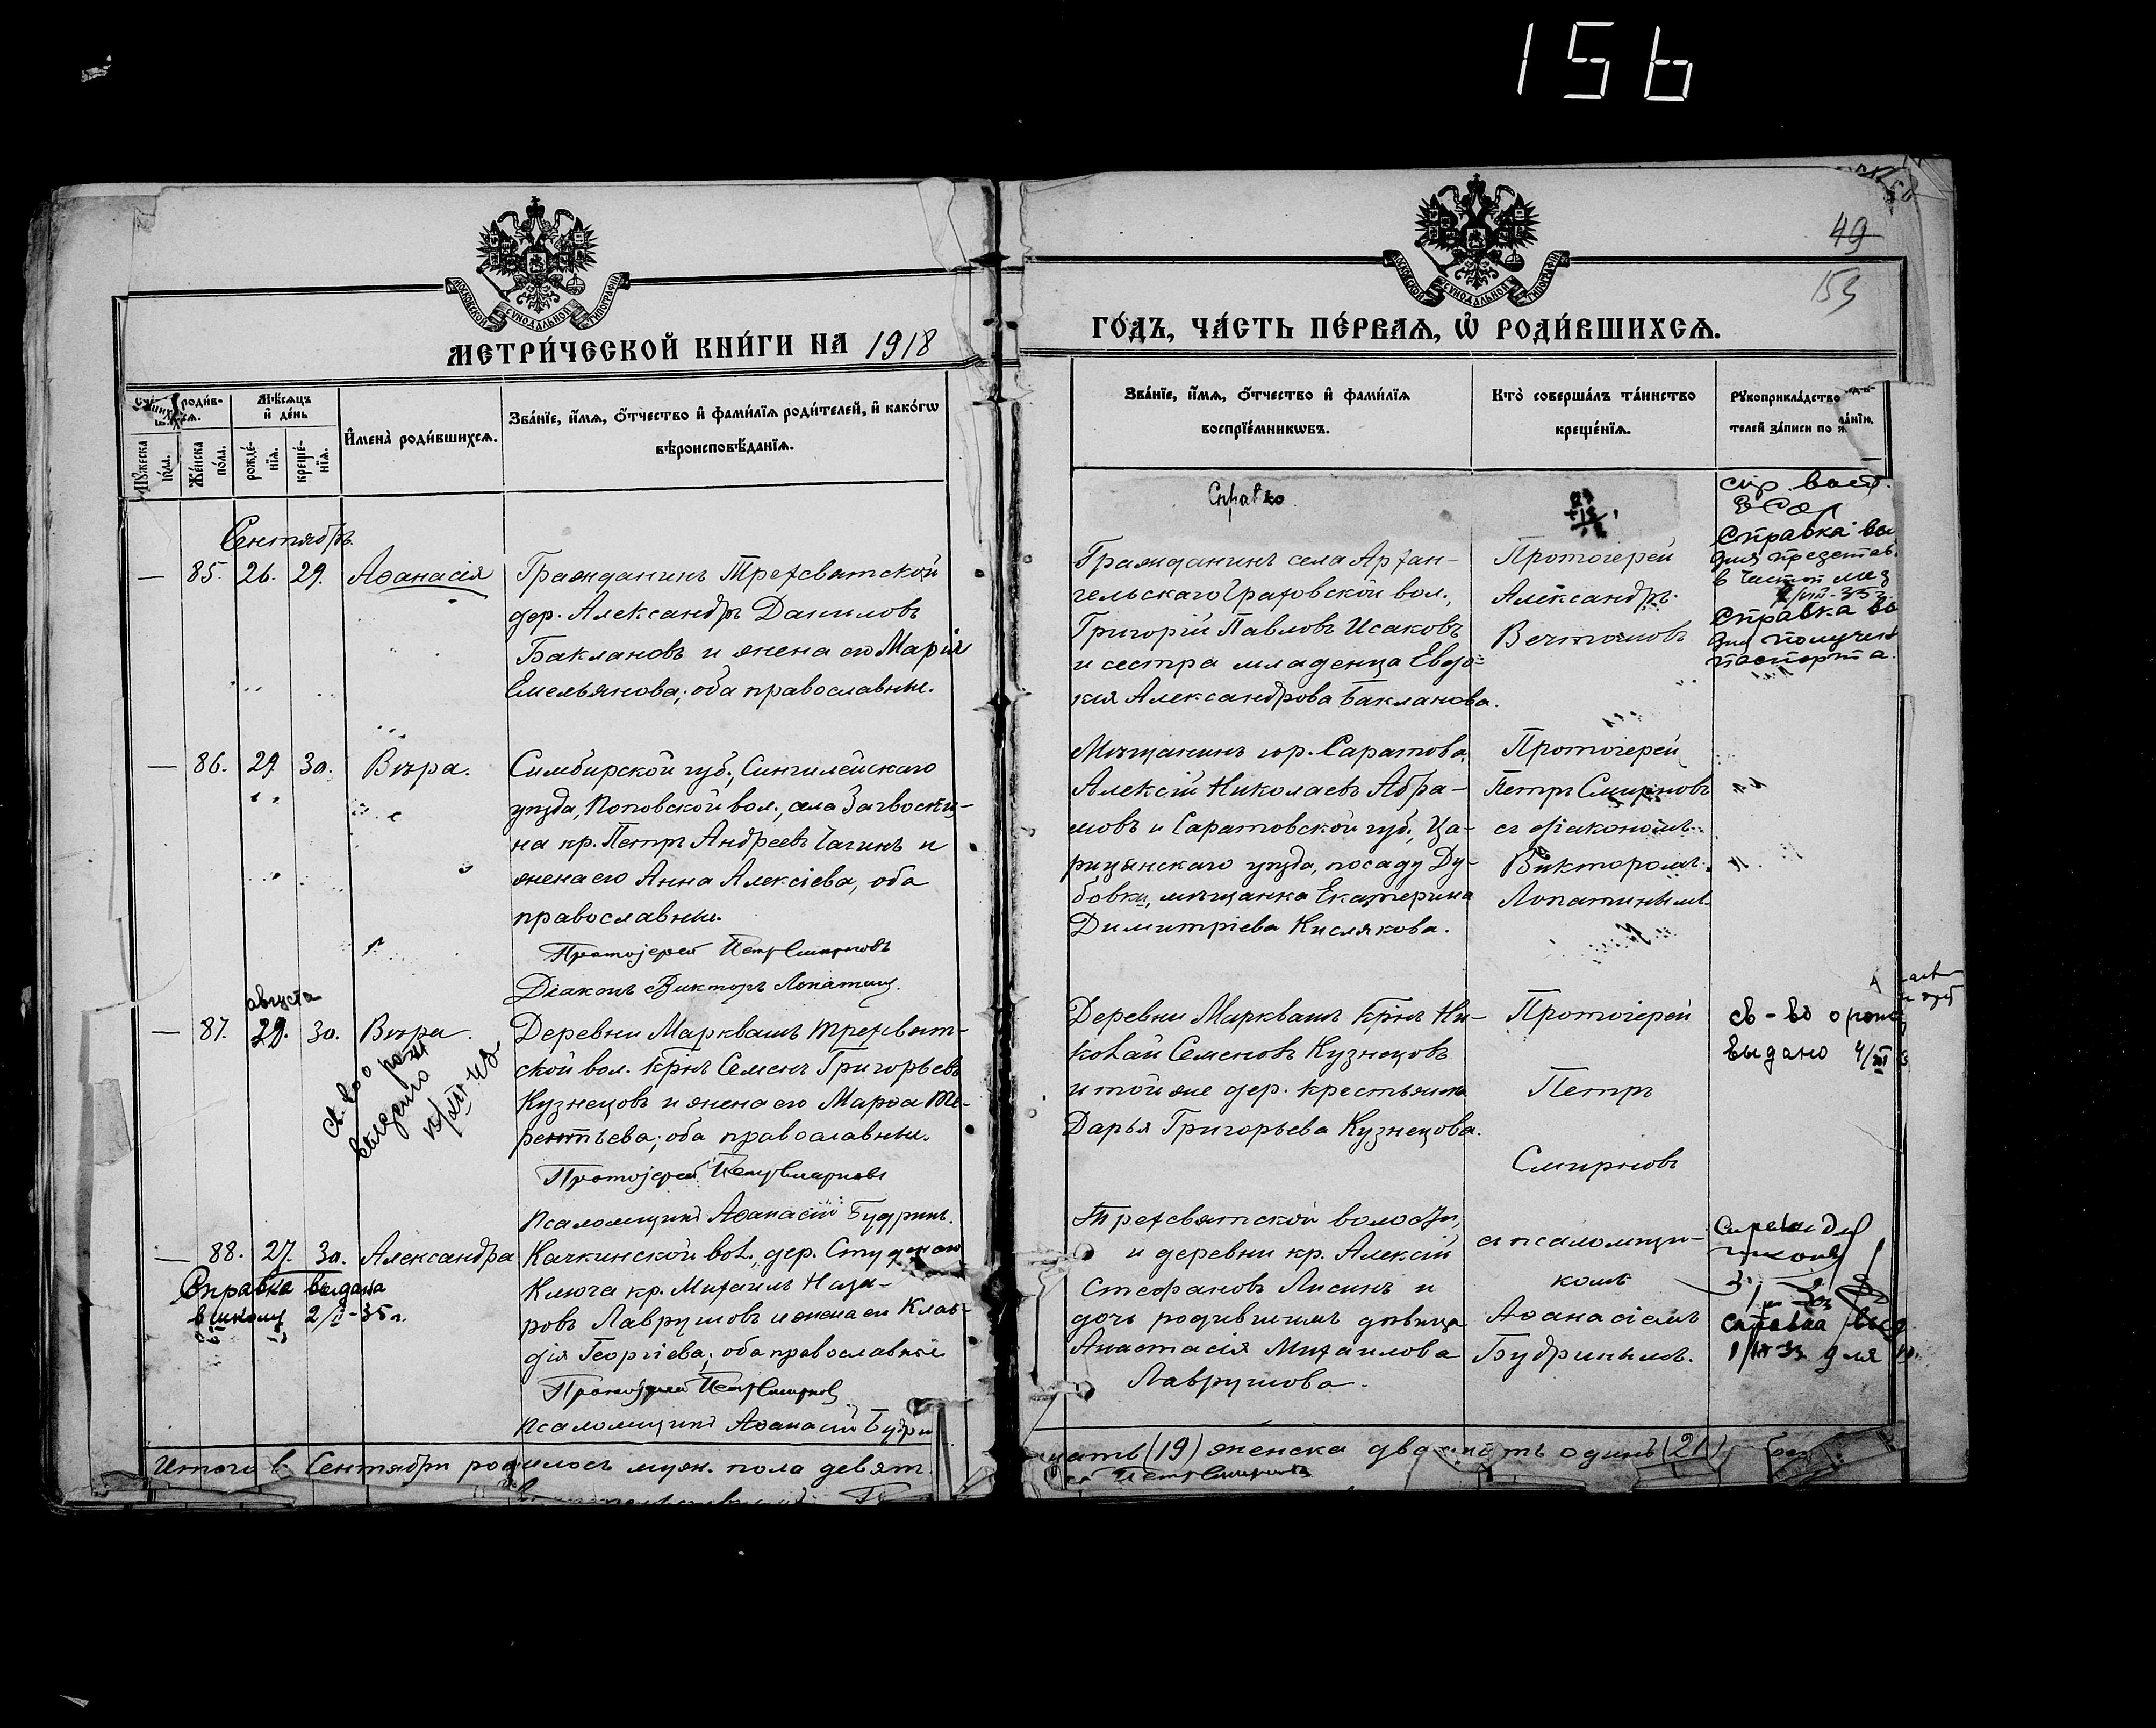 156
49
153
МОСКОВСКОЙ СУНОДАЛЬНОЙ ТИПОГРАФІИ
МОСКОВСКОЙ СУНОДАЛЬНОЙ ТИПОГРАФІИ
МЕТРИ́ЧЕСКОЙ КНИ́ГИ НА 1918
ГО́ДЪ, ЧА́СТЬ ПЕ́РВАѦ, Ѡ҆ РОДИ́ВШИХСѦ.
роди́в-
Мѣ́сѧцъ и҆ де́нь
Мꙋ́жеска по́ла.
Же́нска по́ла.
рожде́-нїѧ.
креще́-нїѧ.
И҆мена̀ роди́вшихсѧ.
Зва́нїе, и҆́мѧ, ѻ҆́тчество и҆ фами́лїѧ роди́телей, и҆ како́гѡ
вѣроисповѣ́данїѧ.
Зва́нїе, и҆́мѧ, ѻ҆́тчество и҆ фами́лїѧ
воспрїе́мникѡвъ.
Кто̀ соверша́лъ та́инство
креще́нїѧ.
Рꙋкоприкла́дство
телей за́писи по
Сентябрь.
— 85. 26. 29. Аѳанасія
Гражданинъ Трехсвятской
дер. Александръ Даниловъ
Баклановъ и жена его Марія
Емельянова; оба православные.
Справка
Гражданинъ села Архан-
гельскаго Граховской вол.,
Григорій Павловъ Исаковъ
и сестра младенца Евдо-
кія Александрова Бакланова.
Протоіерей
Александръ
Справка вы
для представ
в
35 г
Справка вы
для получен
паспорта.
— 86. 29. 30. Вѣра.
Симбирской губ., Сингилейскаго
уѣзда, Поповской вол., села Загвоски-
на кр. Петръ Андреевъ Чагинъ и
жена его Анна Алексіева, оба
православные.
Протоіерей Петръ Смирновъ
Діаконъ Викторъ Лопатинъ.
Мѣщанинъ гор. Саратова
Алексій Николаевъ Абра-
мовъ и Саратовской губ., Ца-
рицынскаго уѣзда, посаду Ду-
бовки, мѣщанка Екатерина
Димитріева Кислякова.
Протоіерей
Петръ Смирновъ
съ діакономъ
Викторомъ
Лопатинымъ.
августа
— 87. 29. 30. Вѣра.
Св-во о рож
выдано
Деревни Марквашъ Трехсвят-
ской вол. кр-нъ Семенъ Григорьевъ
Кузнецовъ и жена его Марѳа Те-
рентьева; оба православные.
Протоіерей Петръ Смирновъ
Псаломщикъ Аѳанасій Будринъ.
Деревни Марквашъ кр-нъ Ни-
колай Семеновъ Кузнецовъ
и той же дер. крестьянка
Дарья Григорьева Кузнецова.
Протоіерей
Петръ
Смирновъ
св-во о рожд
выдано 4/III
— 88. 27. 30. Александра
Справка выдана
в школу 2/II-35 г.
Качкинской вол., дер. Студенаго
Ключа кр. Михаилъ Наза-
ровъ Лаврушовъ и жена его Клав-
дія Георгіева; оба православные
Протоіерей Петръ Смирновъ
Псаломщикъ Аѳанасій Будри
Трехсвятской волости,
и деревни кр. Алексій
Стефановъ Лисинъ и
дочь родившимъ дѣвица
Анастасія Михаилова
Лаврушова.
съ псаломщи-
комъ
Аѳанасіемъ
Будринымъ.
справка выд
для
Итого в Сентябрѣ родилось муж. пола девят
цать (19) женска двадцать одинъ (21)
Петръ Смирновъ